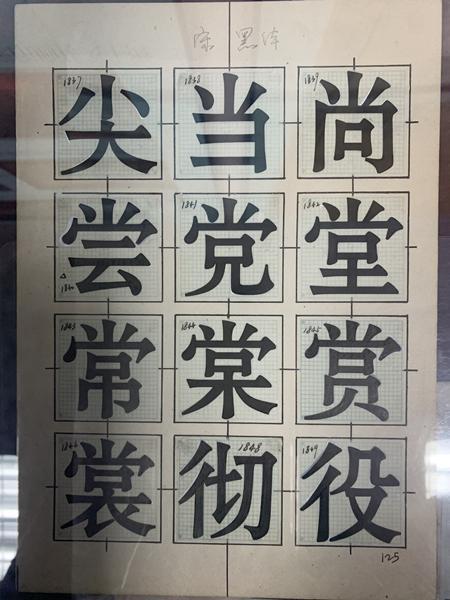 宋 黑体
1837 尖 1838 当 1839 尚
1840 尝 1841 党 1842 堂
1843 常 1844 棠 1845 赏
1846 裳 1848 彻 1849 役
125